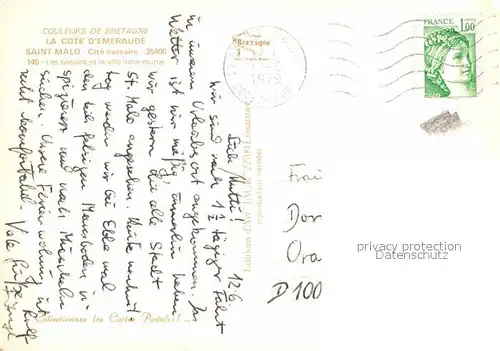 COULEURS DE BRETAGNE
LA COTE D'EMERAUDE
SAINT-MALO Cité corsaire 35400
140 - Les bassins et la ville intra-muros
FRANCE
1,00
1979
12.6.
Liebe Mutti!
Wir sind nach 1½ tägiger Fahrt
in unserem Urlaubsort angekommen. Das
Wetter ist nur mäßig, immerhin haben
wir gestern die alle Stadt
St. Malo angesehen. Heute nachmit
tag werden wir bei Ebbe mal
den teils felsigen Meeresboden in
spizieren und nach Muscheln
suchen. Unsere Ferienwohnung ist
recht komfortabel. Viele Grüße
Rolf
Editions d'Art JACK
reproduction interdite
Frau
Dor
Ora
D 100
privacy protection
Dienstmarks
Collectionnez les Cartes Postales! ...